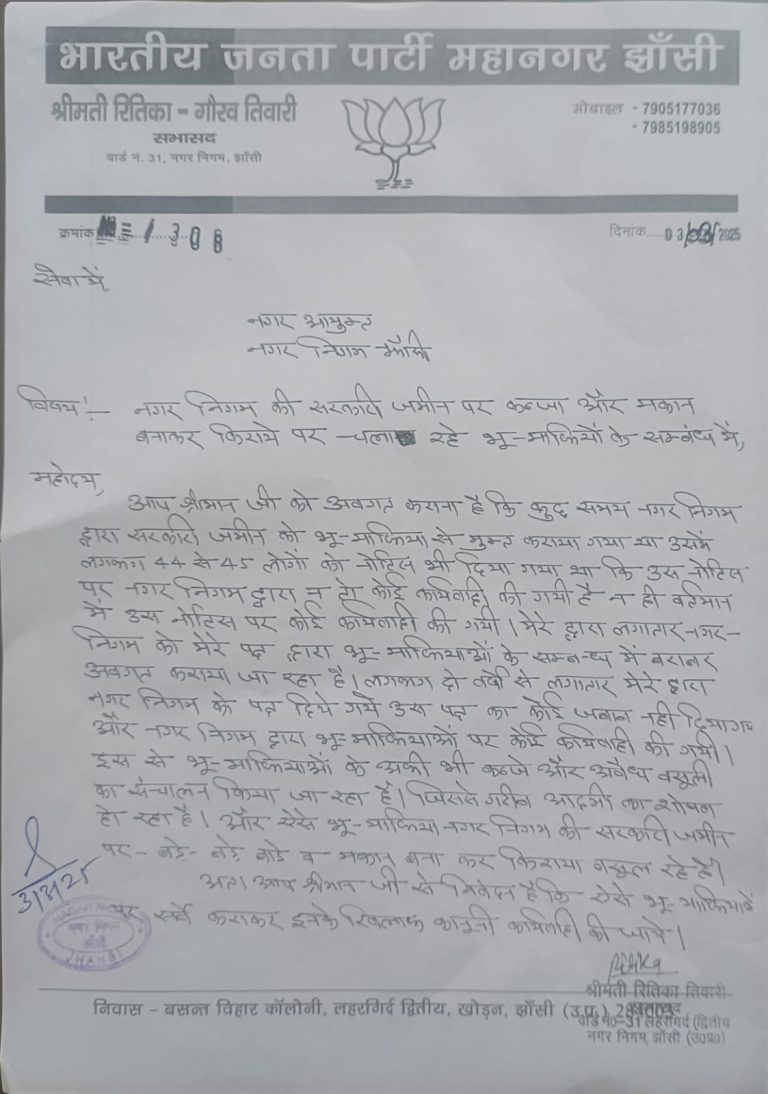 भारतीय जनता पार्टी महानगर झाँसी
श्रीमती रितिका - गौरव तिवारी
सभासद
वार्ड नं. 31, नगर निगम, झाँसी
मोबाइल - 7905177036
- 7985198905
क्रमांक 1 308
दिनांक 03/ /2025
सेवा में
नगर आयुक्त
नगर निगम झाँसी
विषय:- नगर निगम की सरकारी जमीन पर कब्जा और मकान
बनाकर किराये पर चला रहे भू-माफियों के सम्बंध में,
महोदय,
आप श्रीमान जी को अवगत कराना है कि कुछ समय नगर निगम
द्वारा सरकारी जमीन को भू-माफिया से मुक्त कराया गया था उसमें
लगभग 44 से 45 लोगों को नोटिस भी दिया गया था कि उस नोटिस
पर नगर निगम द्वारा न तो कोई कार्यवाही की गयी है न ही वर्तमान
में उस नोटिस पर कोई कार्यवाही की गयी। मेरे द्वारा लगातार नगर-
निगम को मेरे पत्र द्वारा भू-माफियाओं के सम्बन्ध में बराबर
अवगत कराया जा रहा है। लगभग दो वर्षो से लगातार मेरे द्वारा
नगर निगम के पत्र दिये गये उस पत्र का कोई जबाव नही दिया गया
और नगर निगम द्वारा भू-माफियाओं पर कोई कार्यवाही की गयी।
इस से भू-माफियाओं के अभी भी कब्जे और अवैध वसूली
का संचालन किया जा रहा है। जिससे गरीब आदमी का शोषण
हो रहा है। और ऐसे भू-माफिया नगर निगम की सरकारी जमीन
पर - बड़े- बड़े बाडे व मकान बना कर किराया वसूल रहे है।
अतः आप श्रीमान जी से निवेदन है कि ऐसे भू माफियाओं
पर सर्वे कराकर इनके खिलाफ कानूनी कार्यवाही की जाये।
3/3/25
नगर निगम
झाँसी
JHANSI
Ritika
श्रीमती रितिका तिवारी
निवास - बसन्त विहार कॉलोनी, लहरगिर्द द्वितीय, खोड़न, झाँसी (उ.प्र.) 284003
वार्ड न०-31 लहरगिर्द (द्वितीय
नगर निगम, झाँसी (उ०प्र०)